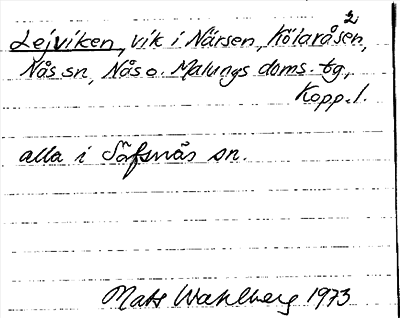 Lejviken, vik i Närsen, Kölaråsen,²
Nås sn, Nås o. Malungs doms. tg,
Kopp. l.
alla i Säfsnäs sn.
Mats Wahlberg 1973